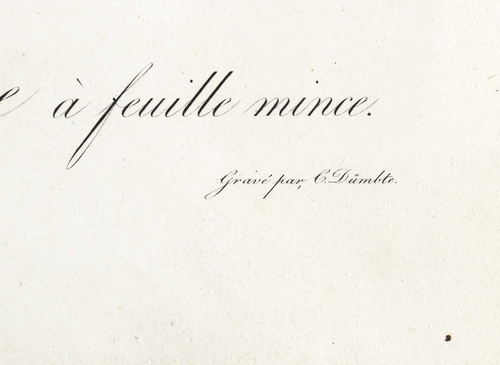 e à feuille mince.
Gravé par C. Dümbte.